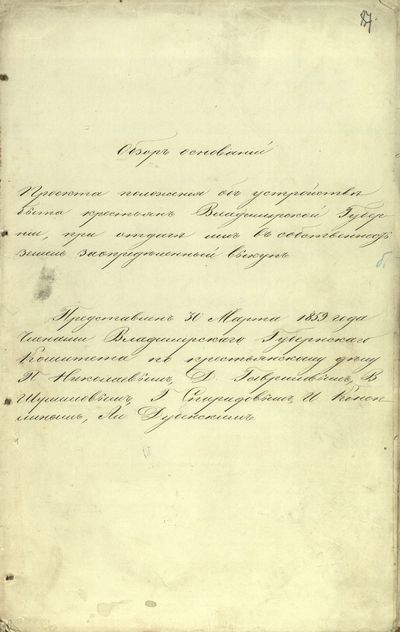 87.
Обзоръ основаній
Проекта положенія объ устройствѣ
быта крестьянъ Владимирской Губер
ніи, при отдачѣ имъ въ собственность
земли за опредѣленный выкупъ
Представленъ 30 Марта 1859 года
Членами Владимирскаго Губернскаго
Комитета по крестьянскому дѣлу
Николаевымъ, Д. Гавриловымъ, В
Шумиловымъ, Г Спиридовымъ, И
Дубенскимъ